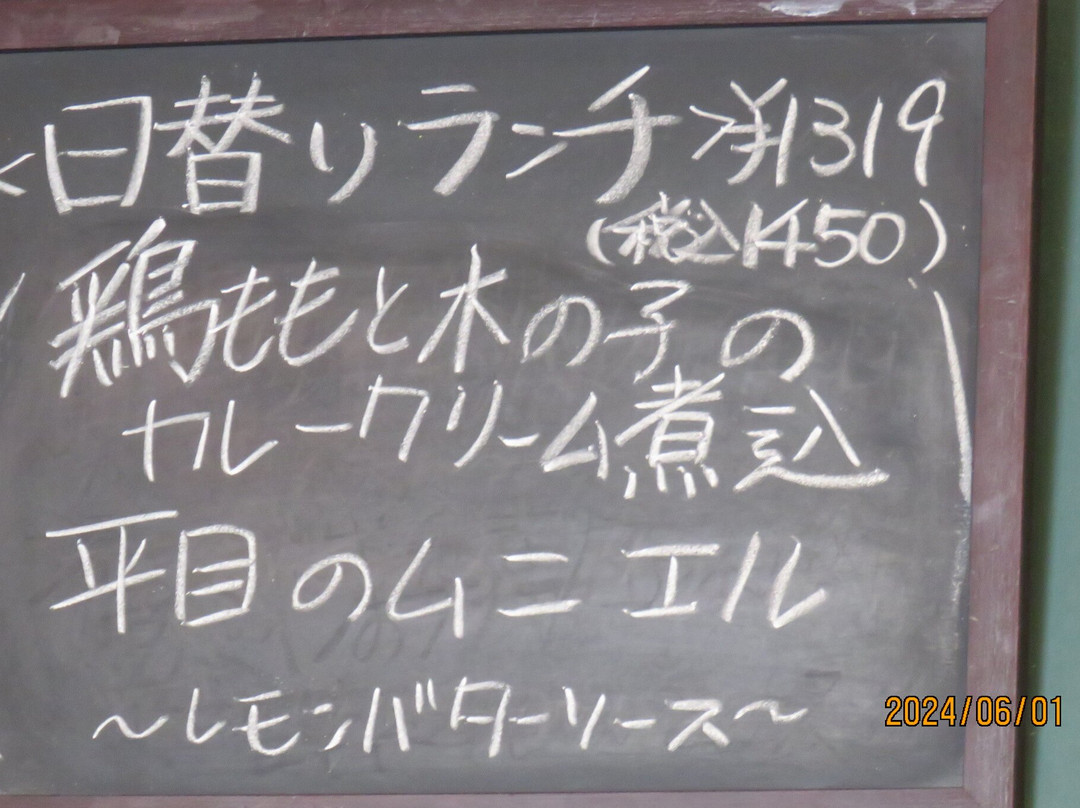 <日替りランチ>¥1319
(税込1450)
鶏ももと木の子の
カレークリーム煮込
平目のムニエル
～レモンバターソース～
2024/06/01